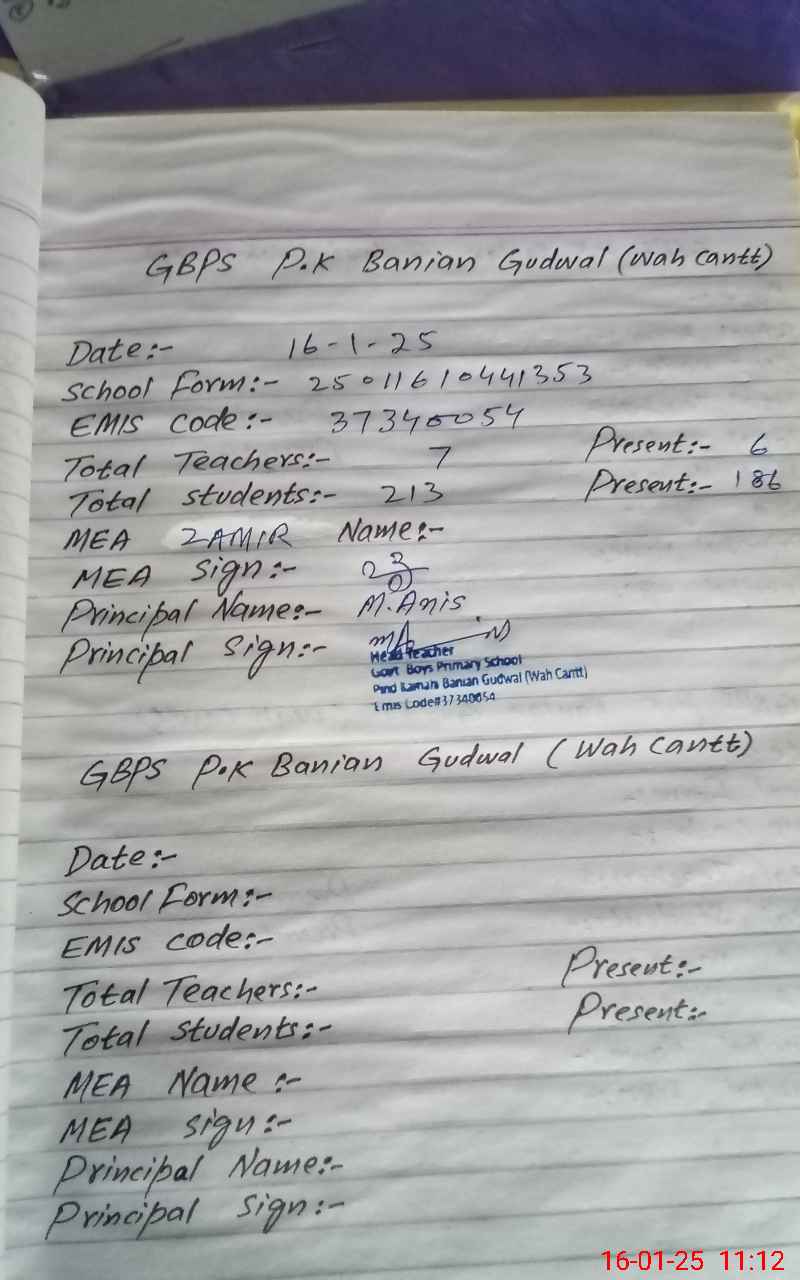 GBPS P.K Banian Gudwal (Wah Cantt)
Date:- 16-1-25
School Form:- 25011610441353
EMIS Code:- 37340054
Total Teachers:- 7 Present:- 6
Total Students:- 213 Present:- 186
MEA ZAMIR Name:-
MEA Sign:-
Principal Name:- M.Anis
Principal Sign:-
Head Teacher
Govt Boys Primary School
Pind Kamahi Banian Gudwal (Wah Cantt)
Emis Code#37340054
GBPS P.K Banian Gudwal (Wah Cantt)
Date:-
School Form:-
EMIS Code:-
Total Teachers:- Present:-
Total Students:- Present:-
MEA Name:-
MEA Sign:-
Principal Name:-
Principal Sign:-
16-01-25 11:12